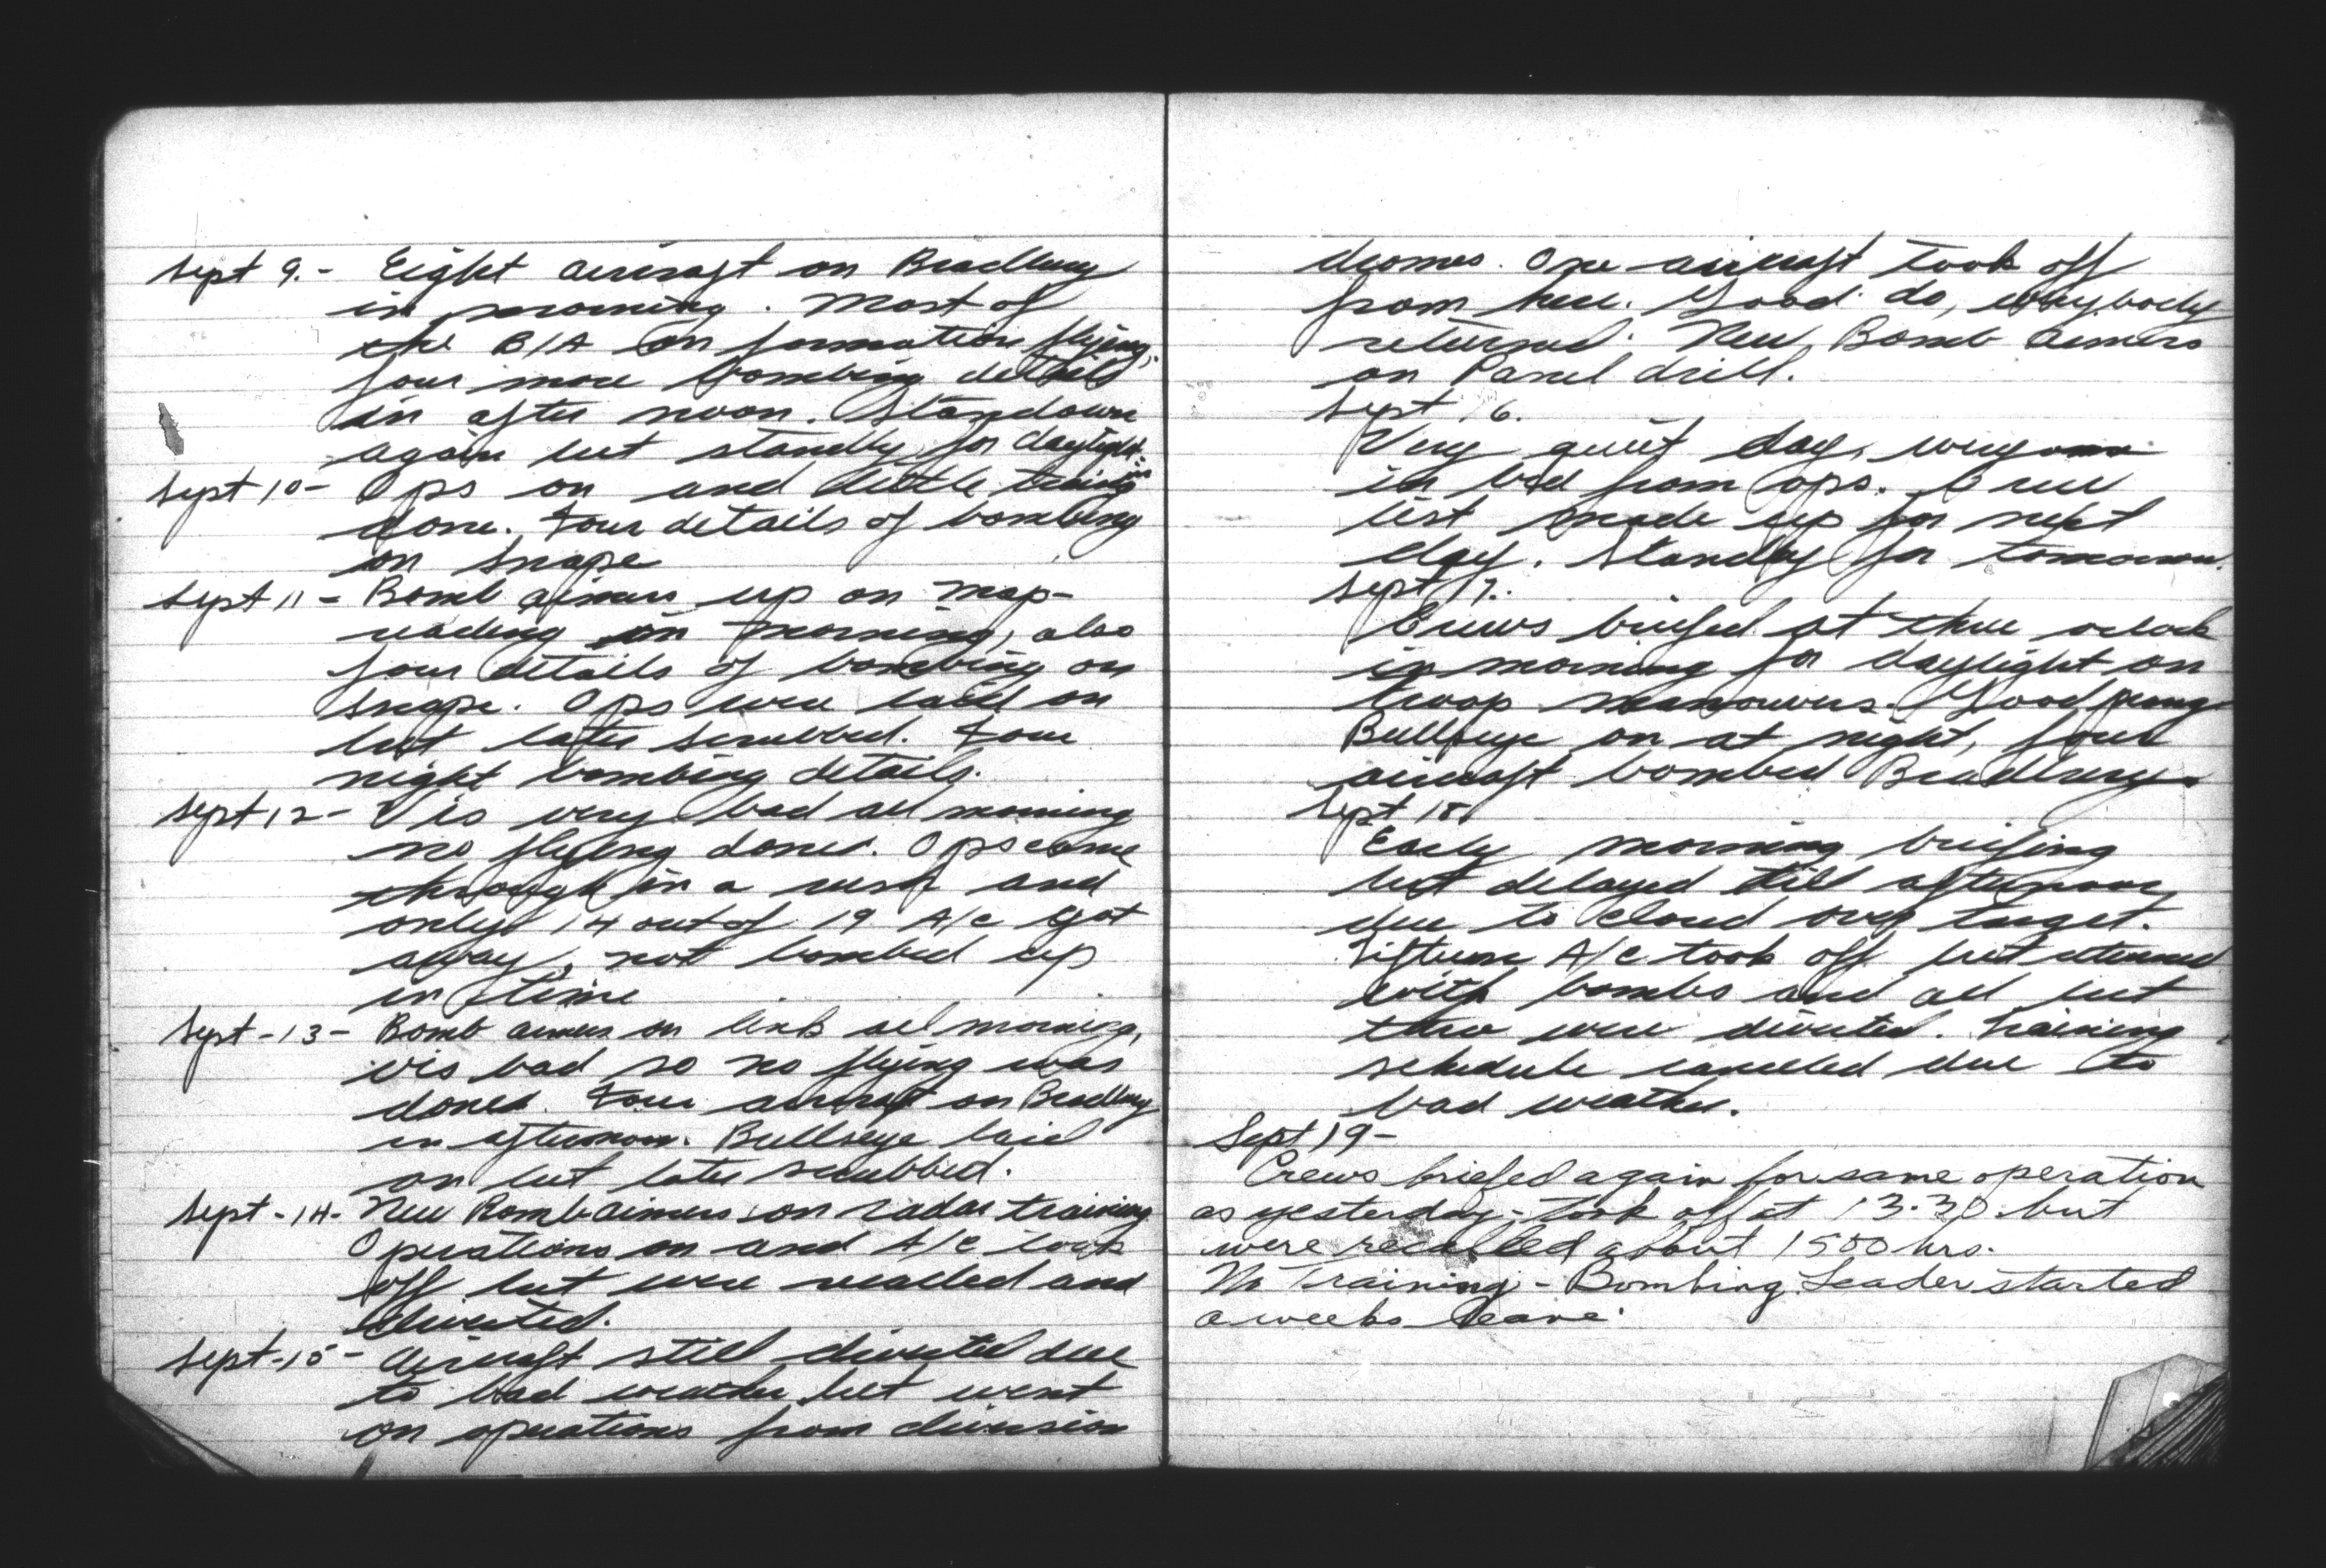 Sept 9. - Eight aircraft on Bradbury
in morning. Most of
the B/A on formation flying,
four more bombing details
in after noon. Standown
again but standby for daylight.
Sept 10 - Ops on and little training
done. Four details of bombing
on Snape
Sept 11 - Bomb aimers up on map-
reading in morning, also
four details of bombing on
Snape. Ops were laid on
but later scrubbed. Four
night bombing details.
Sept 12 - Vis very bad all morning
no flying done. Ops came
through in a rush and
only 14 out of 19 A/C got
away, not bombed up
in time
Sept - 13 - Bomb aimers on link all morning,
vis bad so no flying was
done. Four aircraft on Bradbury
in afternoon. Bullseye laid
on but later scrubbed.
Sept - 14 - New Bomb aimers on radar training
Operations on and A/C took
off but were recalled and
diverted.
Sept - 15 - Aircraft still diverted due
to bad weather but went
on operations from diversion
dromes. One aircraft took off
from here. Good do, everybody
returned. New Bomb aimers
on Panel drill.
Sept 16.
Very quiet day, everyone
in bed from ops. Crew
list made up for next
day. Standby for tomorrow.
Sept 17.
Crews briefed at three oclock
in morning for daylight on
troop manouvers. Good prang.
Bullseye on at night, four
aircraft bombed Bradbury.
Sept 18.
Early morning briefing
but delayed till afternoon
due to cloud over target.
Fifteen A/C took off but returned
with bombs and all but
two were diverted. Training
schedule cancelled due to
bad weather.
Sept 19 -
Crews briefed again for same operation
as yesterday - took off at 13.30 but
were recalled about 1500 hrs.
No Training - Bombing Leader started
a weeks leave.